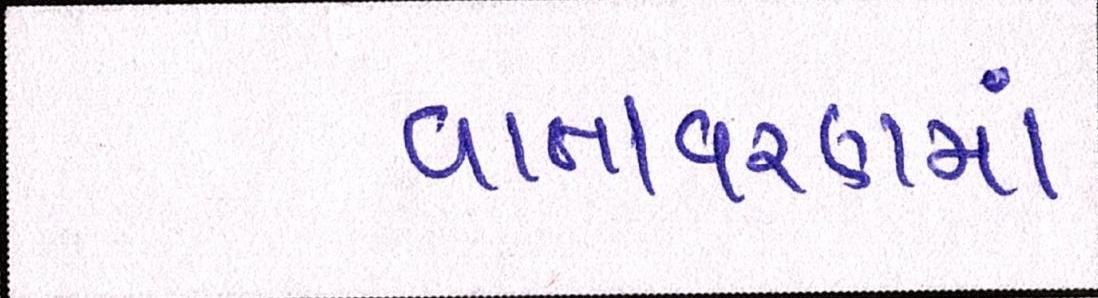 વાતાવરણમાં